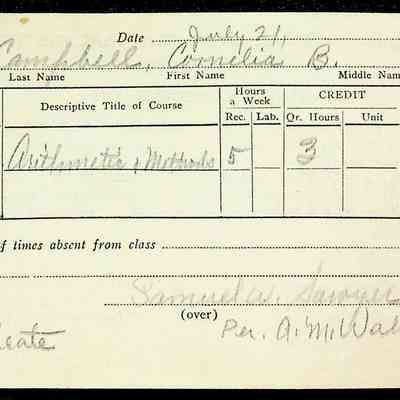 Date July 21,
Campbell, Cornelia B.
Last Name First Name Middle Nam
Descriptive Title of Course Hours a Week CREDIT
Rec. Lab. Qr. Hours Unit
Arithmetic & Methods 5 3
f times absent from class
Samuel W. Sawyer
(over)
Per. A. M. Wal